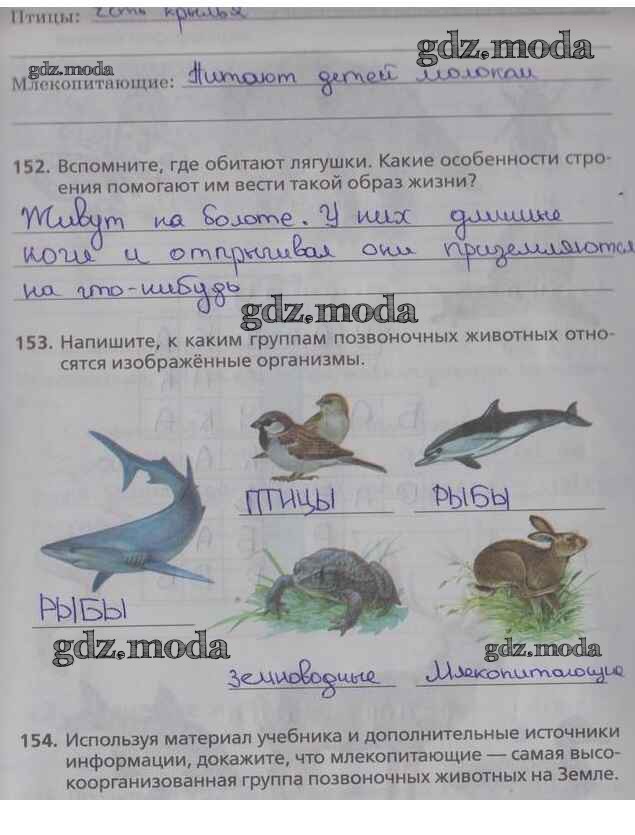 Птицы: есть крылья
gdz.moda
gdz.moda
Млекопитающие: Питают детей молоком
152. Вспомните, где обитают лягушки. Какие особенности стро-
ения помогают им вести такой образ жизни?
Живут на болоте. У них длинные
ноги и отпрыгивая они приземляются
на что-нибудь
gdz.moda
153. Напишите, к каким группам позвоночных животных отно-
сятся изображённые организмы.
ПТИЦЫ РЫБЫ
РЫБЫ
gdz.moda gdz.moda
Земноводные Млекопитающие
154. Используя материал учебника и дополнительные источники
информации, докажите, что млекопитающие — самая высо-
коорганизованная группа позвоночных животных на Земле.